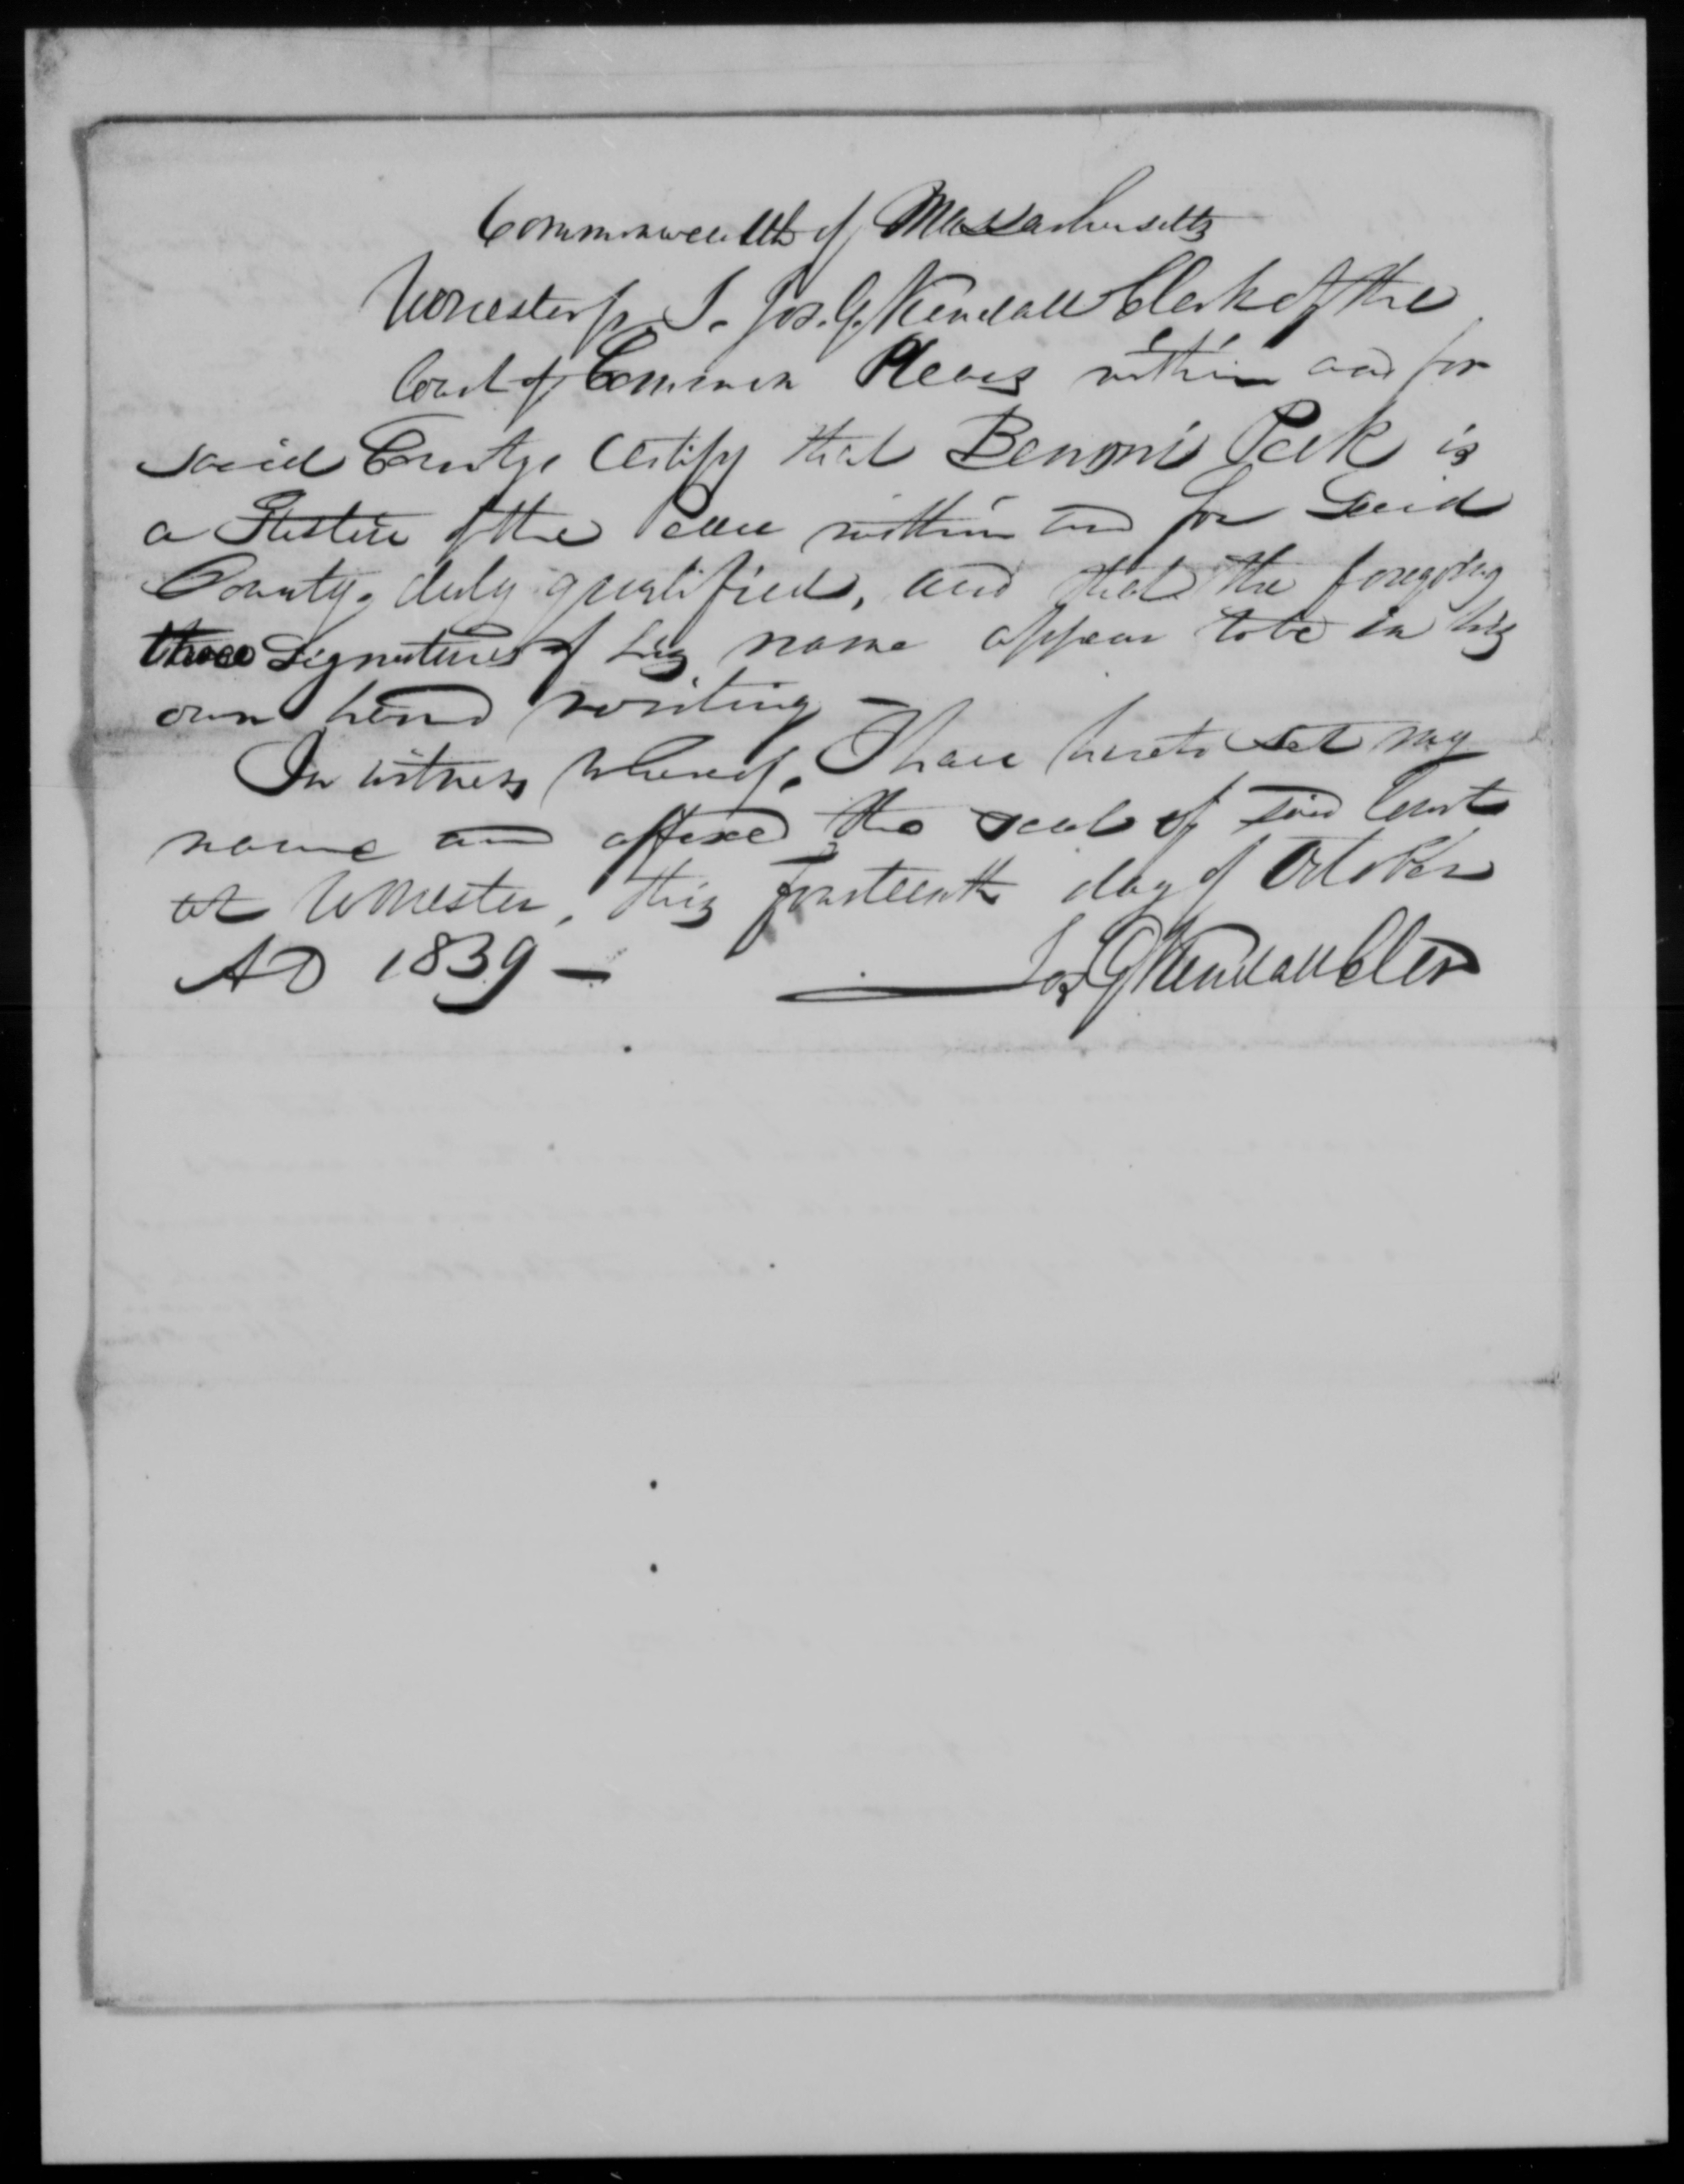 Commonwealth of Massachusetts
Worcester ss. I. Jos. G. Kendall Clerk of the
Court of Common Pleas within and for
said County, certify that Benoni Peck is
a Justice of the Peace within and for said
County, duly qualified, and that the foregoing
three signatures of his name appear to be in his
own hand writing —
In witness whereof, I have hereto set my
name and affixed the seal of said Court
at Worcester, this fourteenth day of October
AD 1839 — Jos. G. Kendall Cler